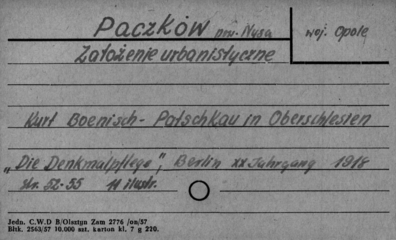 Paczków pow. Nysa woj. Opole
Założenie urbanistyczne
Kurt Boenisch - Patschkau in Oberschlesien
„Die Denkmalpflege", Berlin XX Jahrgang 1918
Nr. 52-55 11 illustr.
Jedn. C.W.D B/Olsztyn Zam 2776 /on/57
Bltk. 2563/57 10.000 szt. karton kl. 7 g 220.